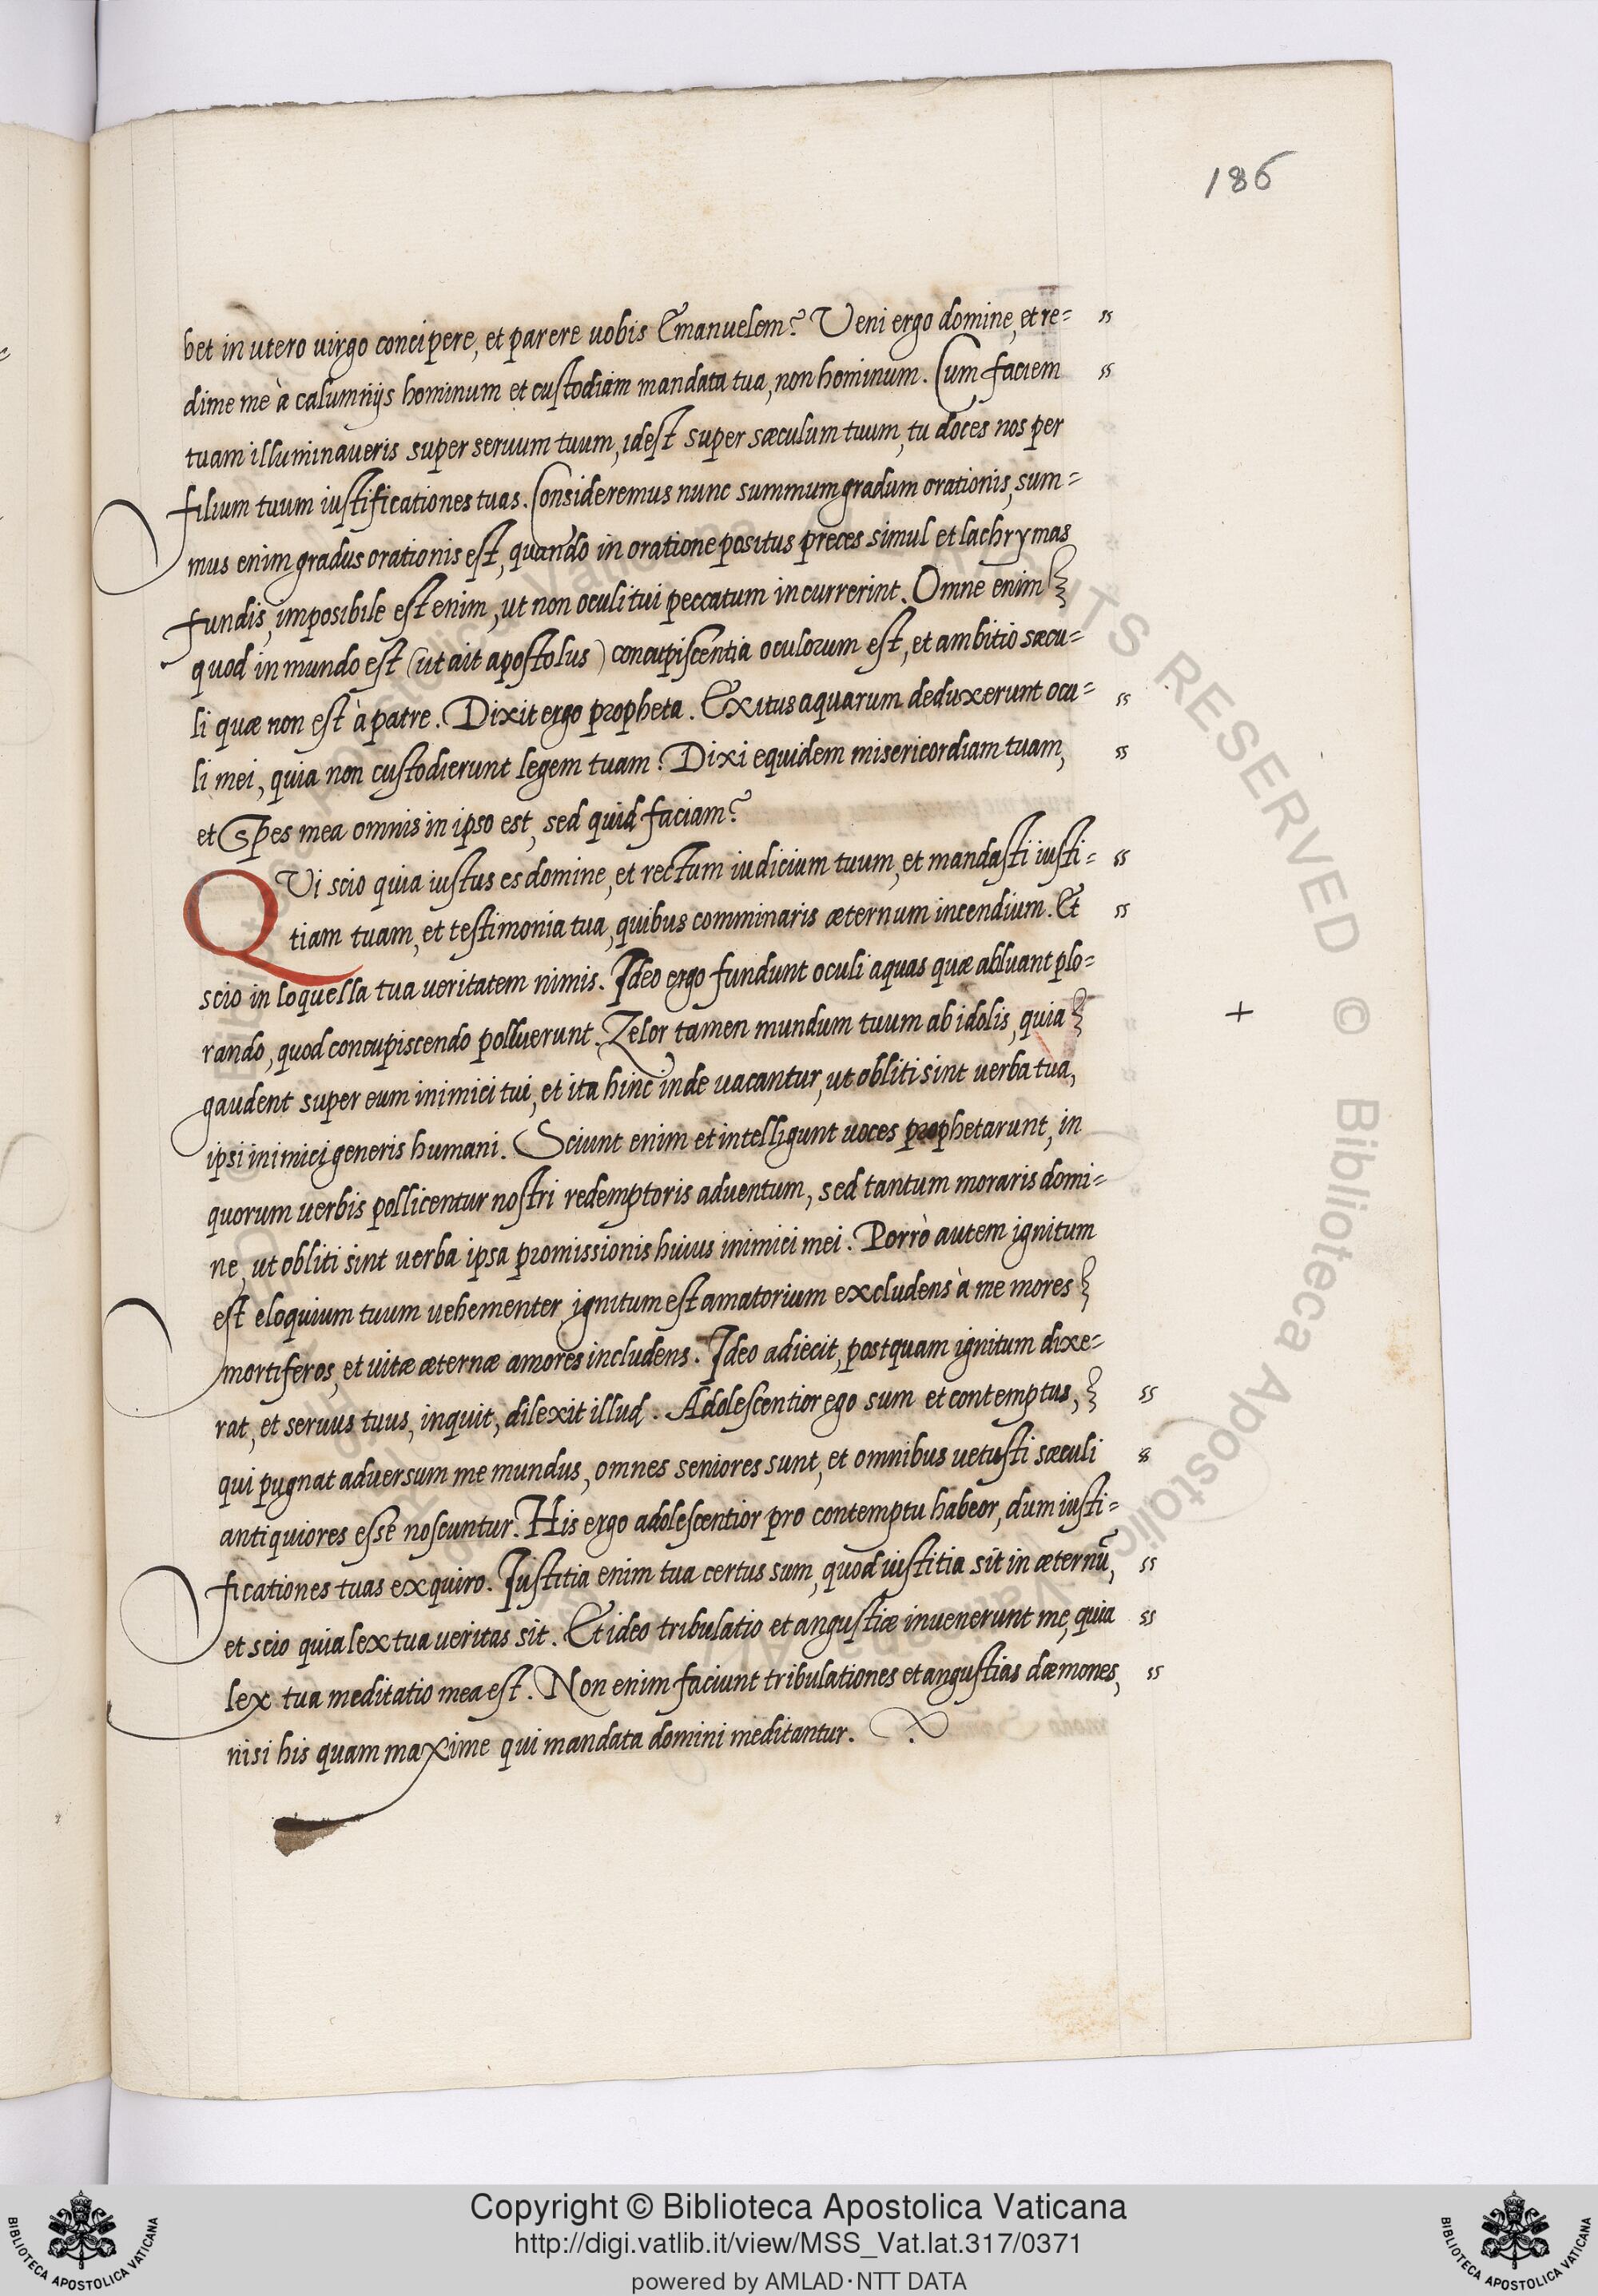 186
bet in utero virgo concipere, et parere uobis Emanuelem? Veni ergo domine, et re= "
dime me à calumnijs hominum et custodiam mandata tua, non hominum. Cum faciem "
tuam illuminaueris super seruum tuum, idest super sæculum tuum, tu doces nos per
filium tuum iustificationes tuas. Consideremus nunc summum gradum orationis, sum=
mus enim gradus orationis est, quando in oratione positus preces simul et lachrymas
fundis, imposibile est enim, ut non oculi tui peccatum incurrerint. Omne enim
quod in mundo est (ut ait apostolus) concupiscentia oculorum est, et ambitio sæcu=
li quæ non est à patre. Dixit ergo propheta. Exitus aquarum deduxerunt ocu= "
li mei, quia non custodierunt legem tuam? Dixi equidem misericordiam tuam, "
et spes mea omnis in ipso est, sed quid faciam?
QVi scio quia iustus es domine, et rectum iudicium tuum, et mandasti iusti= "
tiam tuam, et testimonia tua, quibus comminaris æternum incendium. Et "
scio in loquella tua ueritatem nimis. Ideo ergo fundunt oculi aquas quæ abluant plo=
rando, quod concupiscendo polluerunt. Zelor tamen mundum tuum ab idolis, quia
gaudent super eum inimici tui, et ita hinc inde uacantur, ut obliti sint uerba tua,
ipsi inimici generis humani. Sciunt enim et intelligunt uoces prophetarunt, in
quorum uerbis pollicentur nostri redemptoris aduentum, sed tantum moraris domi=
ne, ut obliti sint uerba ipsa promissionis huius inimici mei. Porrò autem ignitum
est eloquium tuum uehementer, ignitum est amatorium excludens à me mores
mortiferos, et uitæ æternæ amores includens. Ideo adiecit, postquam ignitum dixe=
rat, et seruus tuus, inquit, dilexit illud. Adolescentior ego sum et contemptus, "
qui pugnat aduersum me mundus, omnes seniores sunt, et omnibus uetusti sæculi 8
antiquiores esse noscuntur. His ergo adolescentior pro contemptu habeor, dum iusti=
ficationes tuas exquiro. Iustitia enim tua certus sum, quod iustitia sit in æternũ, "
et scio quia lex tua ueritas sit. Et ideo tribulatio et angustiæ inuenerunt me, quia "
lex tua meditatio mea est. Non enim faciunt tribulationes et angustias dæmones, "
nisi his quam maxime qui mandata domini meditantur.
+
Copyright © Biblioteca Apostolica Vaticana
http://digi.vatlib.it/view/MSS_Vat.lat.317/0371
powered by AMLAD·NTT DATA
BIBLIOTECA APOSTOLICA VATICANA
BIBLIOTECA APOSTOLICA VATICANA